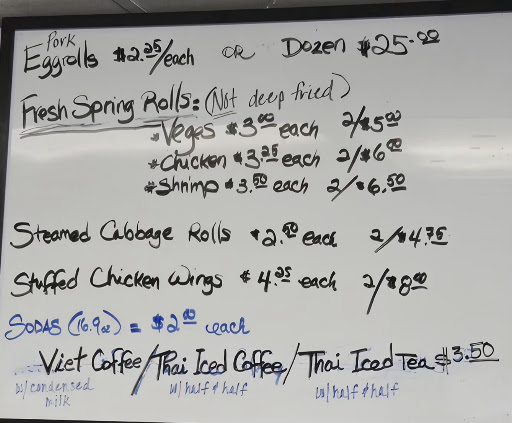 Pork
Eggrolls $2.25/each OR Dozen $25.00
Fresh Spring Rolls: (Not deep fried)
*Veges $3.00 each 2/$5.00
*Chicken $3.25 each 2/$6.00
*Shrimp $3.50 each 2/$6.50
Steamed Cabbage Rolls $2.50 each 2/$4.75
Stuffed Chicken Wings $4.25 each 2/$8.00
SODAS (16.9oz) = $2.00 each
Viet Coffee/Thai Iced Coffee/Thai Iced Tea $3.50
w/condensed milk w/half & half w/half & half